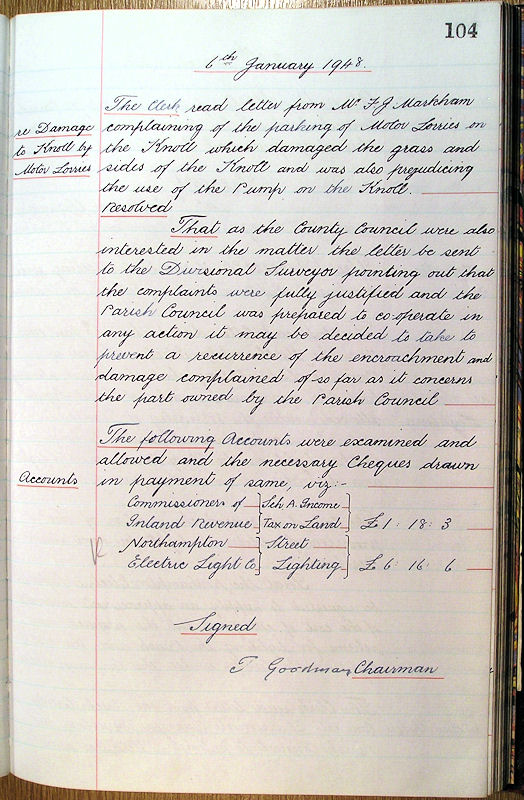 104
6th January 1948.
The Clerk read letter from Mr F.J. Markham
re Damage
complaining of the parking of Motor Lorries on
to Knoll by
the Knoll which damaged the grass and
Motor Lorries
sides of the Knoll and was also prejudicing
the use of the Pump on the Knoll.
Resolved
That as the County Council were also
interested in the matter the letter be sent
to the Divisional Surveyor pointing out that
the complaints were fully justified and the
Parish Council was prepared to co-operate in
any action it may be decided to take to
prevent a recurrence of the encroachment and
damage complained of so far as it concerns
the part owned by the Parish Council
The following Accounts were examined and
allowed and the necessary Cheques drawn
Accounts
in payment of same, viz:-
Commissioners of Sch A. Income
Inland Revenue Tax on Land £1: 18: 3
Northampton Street
Electric Light Co Lighting £6: 16: 6
Signed
T Goodman Chairman